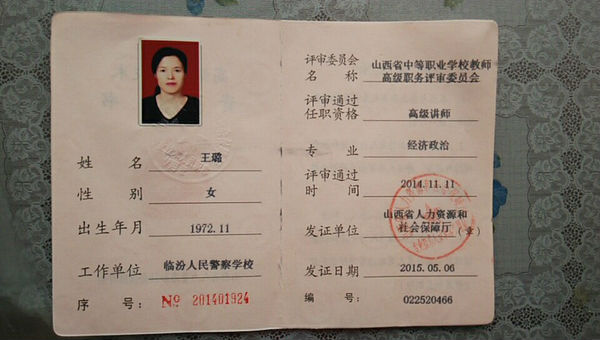 姓 名 王璐
性 别 女
出生年月 1972.11
工作单位 临汾人民警察学校
序 号: № 201401924
评审委员会 山西省中等职业学校教师
名 称 高级职务评审委员会
评审通过
任职资格 高级讲师
专 业 经济政治
评审通过
时 间 2014.11.11
山西省人力资源和
发证单位 社会保障厅 (章)
发证日期 2015.05.06
编 号: 022520466